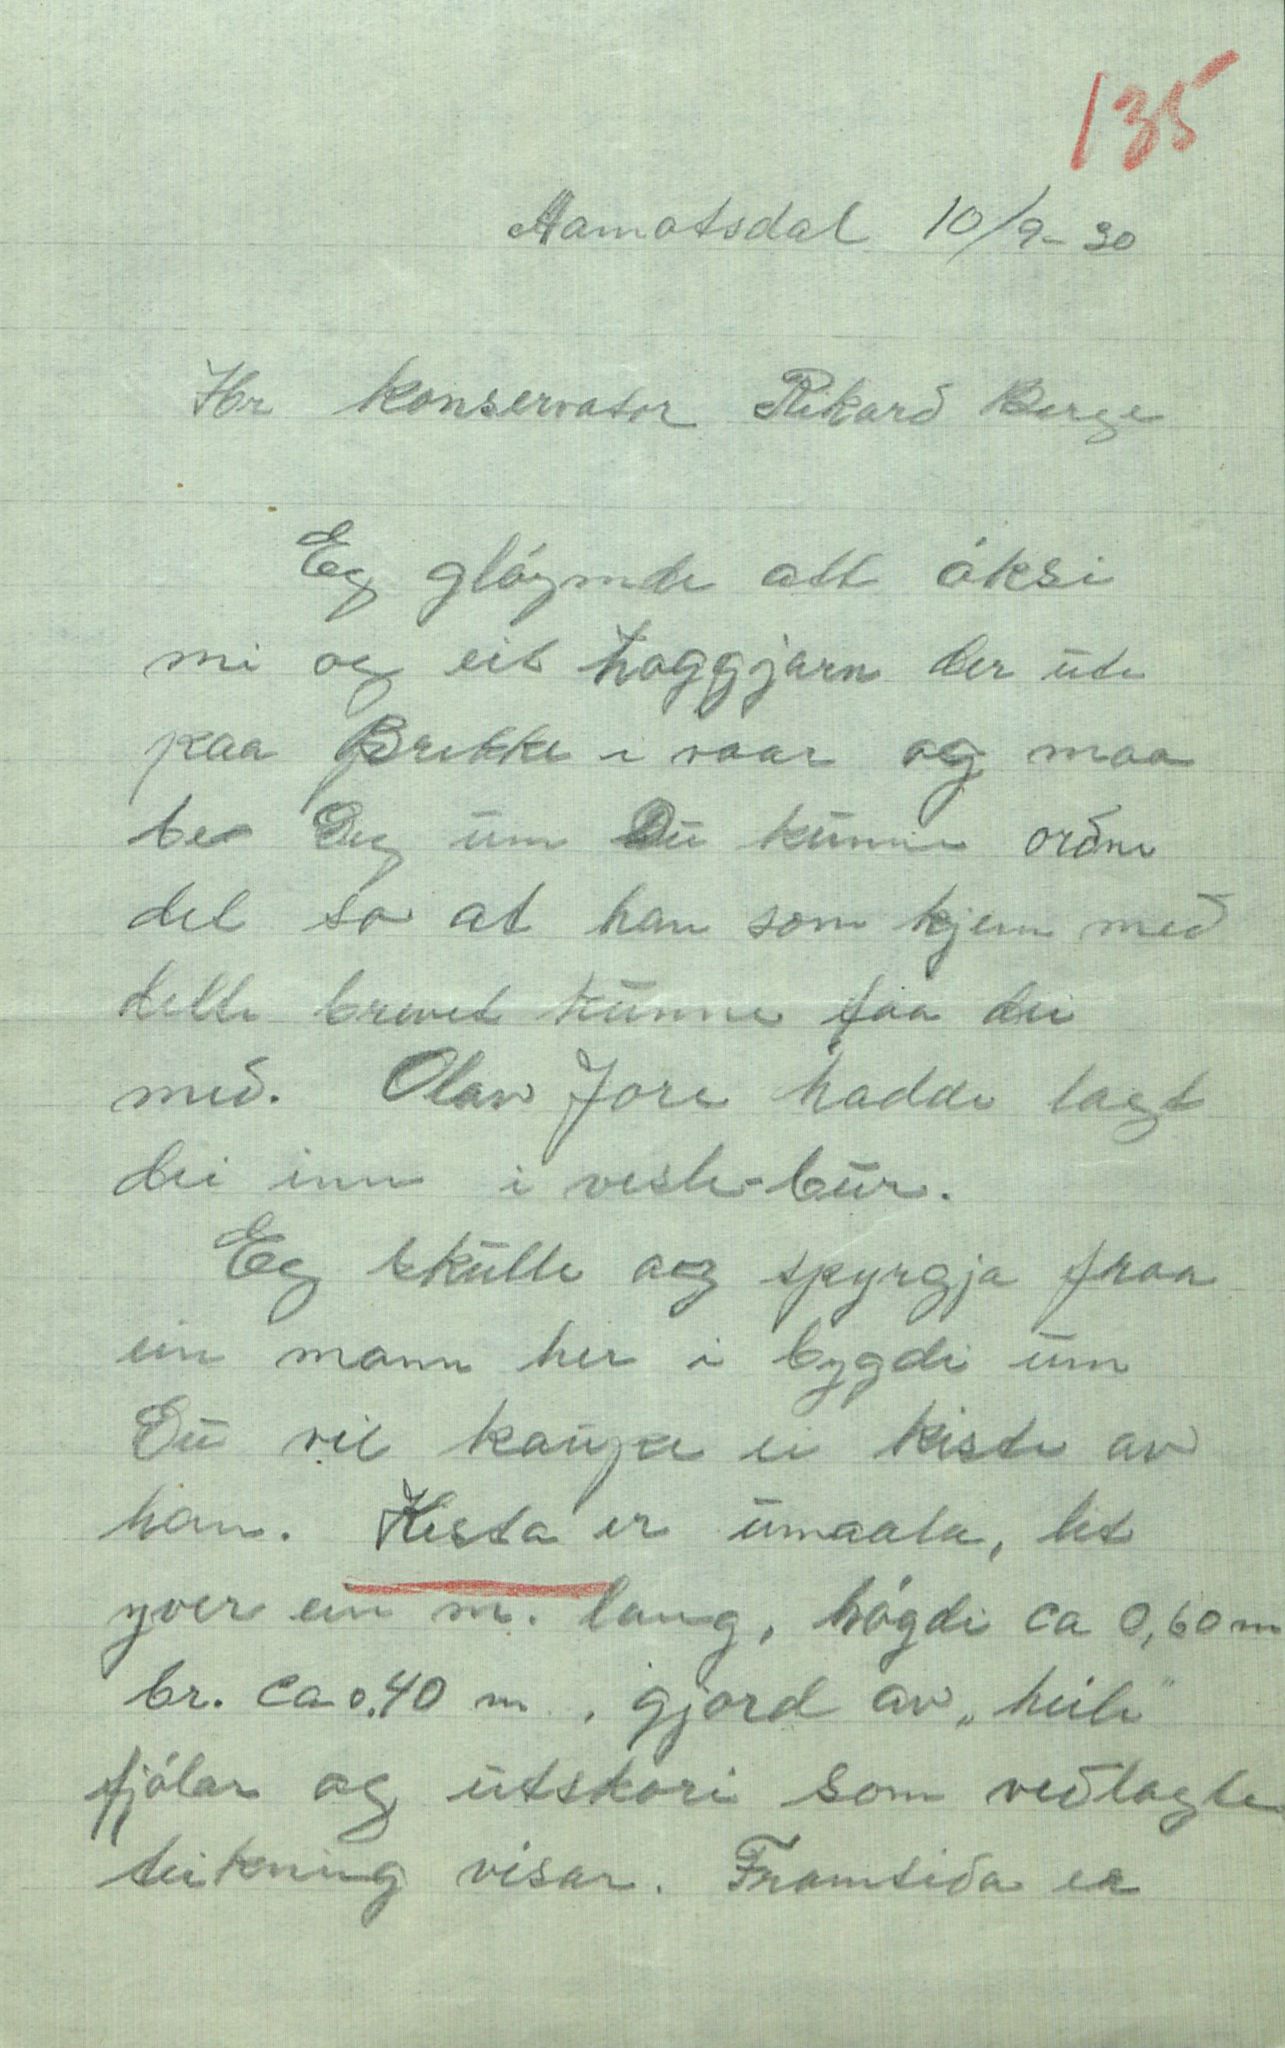 135
Aamotsdal 10/9-30
Hr konservator Rikard Berge
Eg gløymde att øksi
mi og eit hoggjarn der ute
paa Brekke i vaar og maa
be Deg um Du kunne ordne
det so at han som kjem med
dette brevet kunne faa dei
med. Olav Jore hadde lagt
dei inn i vesle-bur.
Eg skulle og spyrgja fraa
ein mann her i bygdi um
Du vil kaupe ei kiste av
han. Kista er umaala, let
yver ein m. lang, høgdi ca 0,60 m
br. ca 0.40 m. gjord av „heile"
fjølar og utskori som vedlagte
teikning visar. Framsida er